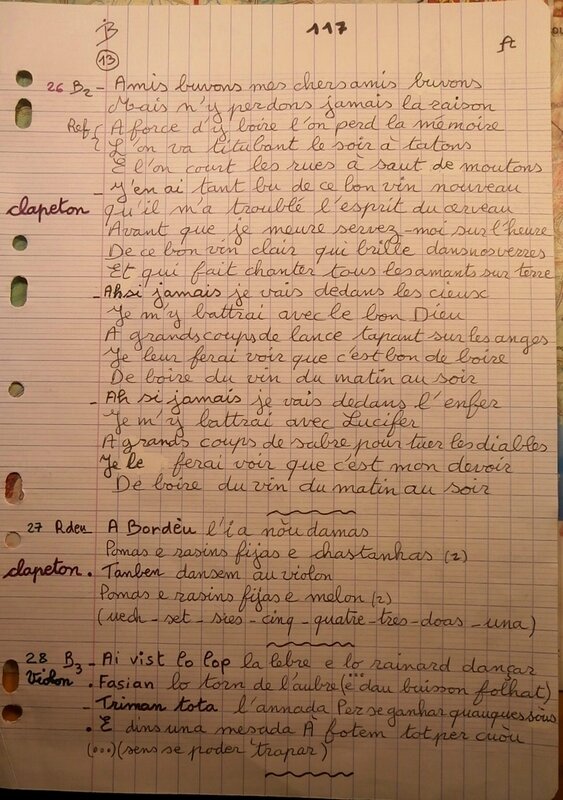 B 117 ft
13
26 B2 - Amis buvons mes chers amis buvons
Mais n'y perdons jamais la raison
Ref { A force d'y boire l'on perd la mémoire
L'on va titubant le soir à tatons
E l'on court les rues à saut de moutons
- Y'en ai tant bu de ce bon vin nouveau
clapeton qu'il m'a troublé l'esprit du cerveau
Avant que je meure servez-moi sur l'heure
De ce bon vin clair qui brille dans nos verres
Et qui fait chanter tous les amants sur terre
- Ah si jamais je vais dedans les cieux
Je m'y battrai avec le bon Dieu
A grands coups de lance tapant sur les anges
Je leur ferai voir que c'est bon de boire
De boire du vin du matin au soir
- Ah si jamais je vais dedans l'enfer
Je m'y battrai avec Lucifer
A grands coups de sabre pour tuer les diables
Je le ferai voir que c'est mon devoir
De boire du vin du matin au soir
27 Rdeu A Bordèu l'i a nòu damas
Pomas e rasins fijas e chastanhas (2)
clapeton . Tanben dansem au violon
Pomas e rasins fijas e melon (2)
(uech _ set _ sies _ cinq _ quatre _ tres _ doas _ una)
28 B3 - Ai vist lo lop la lebre e lo rainard dançar
Violon . Fasian lo torn de l'aubre (e dau buisson folhat)
- Triman tota l'annada Per se ganhar quauques sòus
. E dins una mesada À fotem tot per cuòu
(...) (sens se poder trapar)